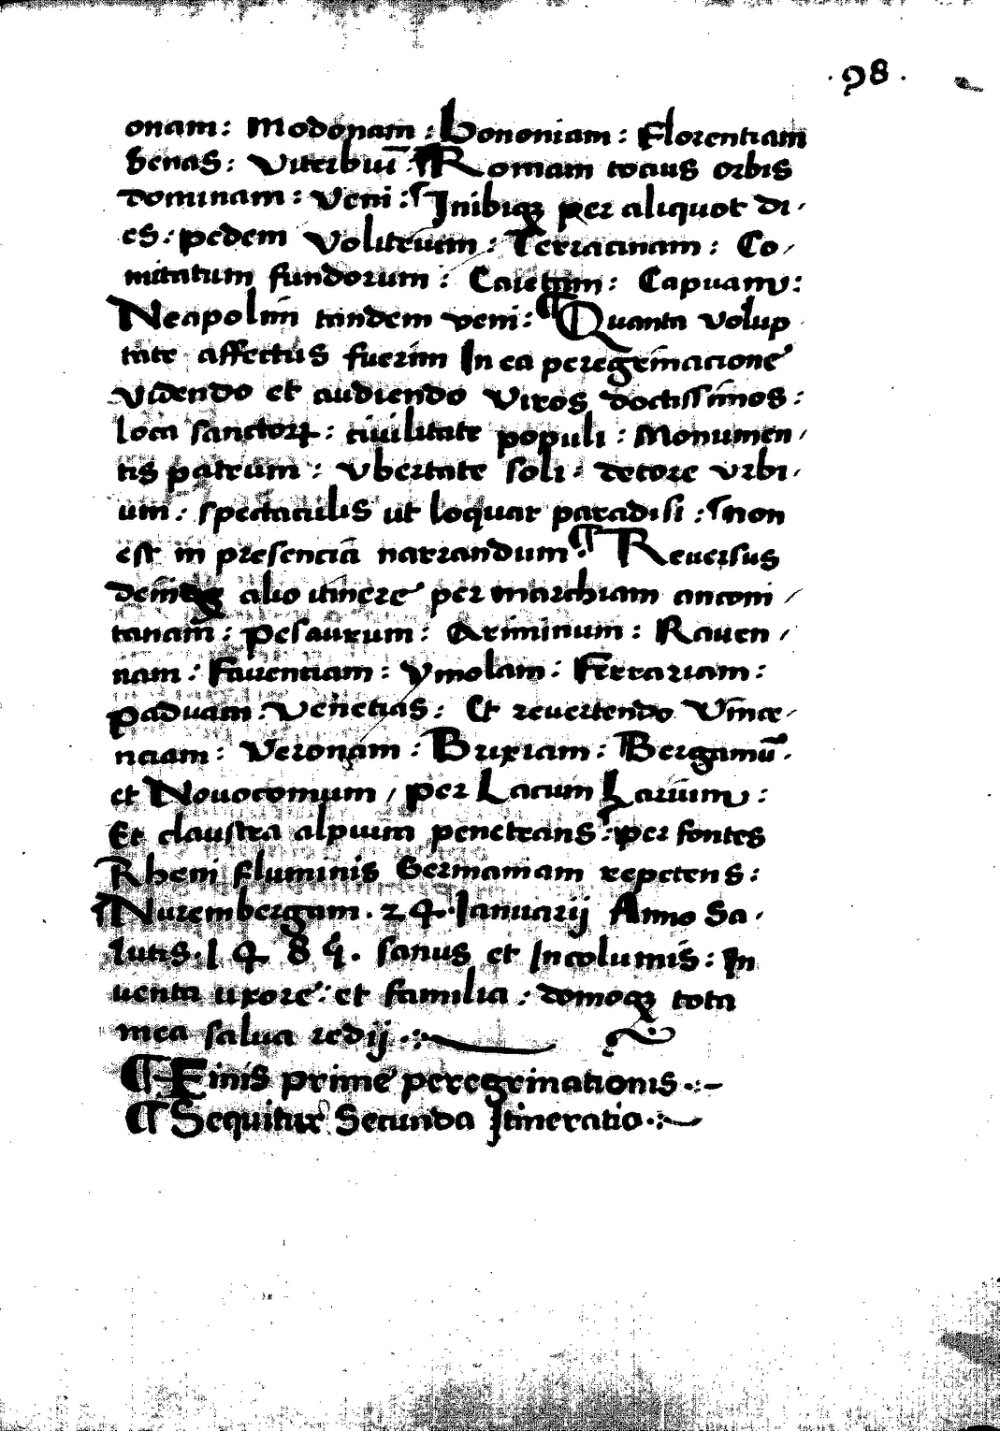 ·98·
onam: Modonam: bononiam: Florentiam
Senas: Viterbiū ¶ Romam tocius orbis
dominam: Veni: ¶ Inibiqꝫ per aliquot di-
es: pedem Volitrium: Terracinam: Co-
mitatum fundorum: Caietam: Capuam:
Neapolim tandem veni: ¶ Quanta volup
tate affectus fuerim In ea peregrinacione
videndo et audiendo Viros doctissimos:
loca sanctoꝝ: ciuilitate populi: Monumen-
tis patrum: Vbertate soli: decore vrbi-
um: spectaculis ut loquar paradisi: ¶ non
est in presenciā narrandum ¶ Reuersus
alio itinere per marchiam anconi-
tanam: pesaurum: Ariminum: Rauen-
nam: Fauentiam: Ymolam: Ferrariam:
paduam: Venetias: Et reuertendo Vince-
nciam: Veronam: Brixiam: Bergamū:
et Nouocomum / per Lacum Larium:
Et claustra alpium penetrans: per fontes
Rheni fluminis Germaniam repetens:
¶ Nurembergam. 24. Ianuarij Anno Sa-
lutis. 1485. sanus et Incolumis: In
uenta uxore: et familia: domoqꝫ tota
mea salua redij.
¶ Finis prime peregrinationis.
¶ Sequitur Secunda Itineratio.